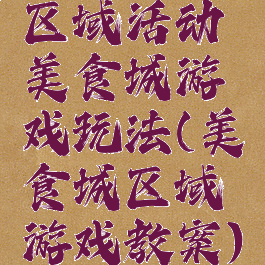 区域活动
美食城游
戏玩法(美
食城区域
游戏教案)